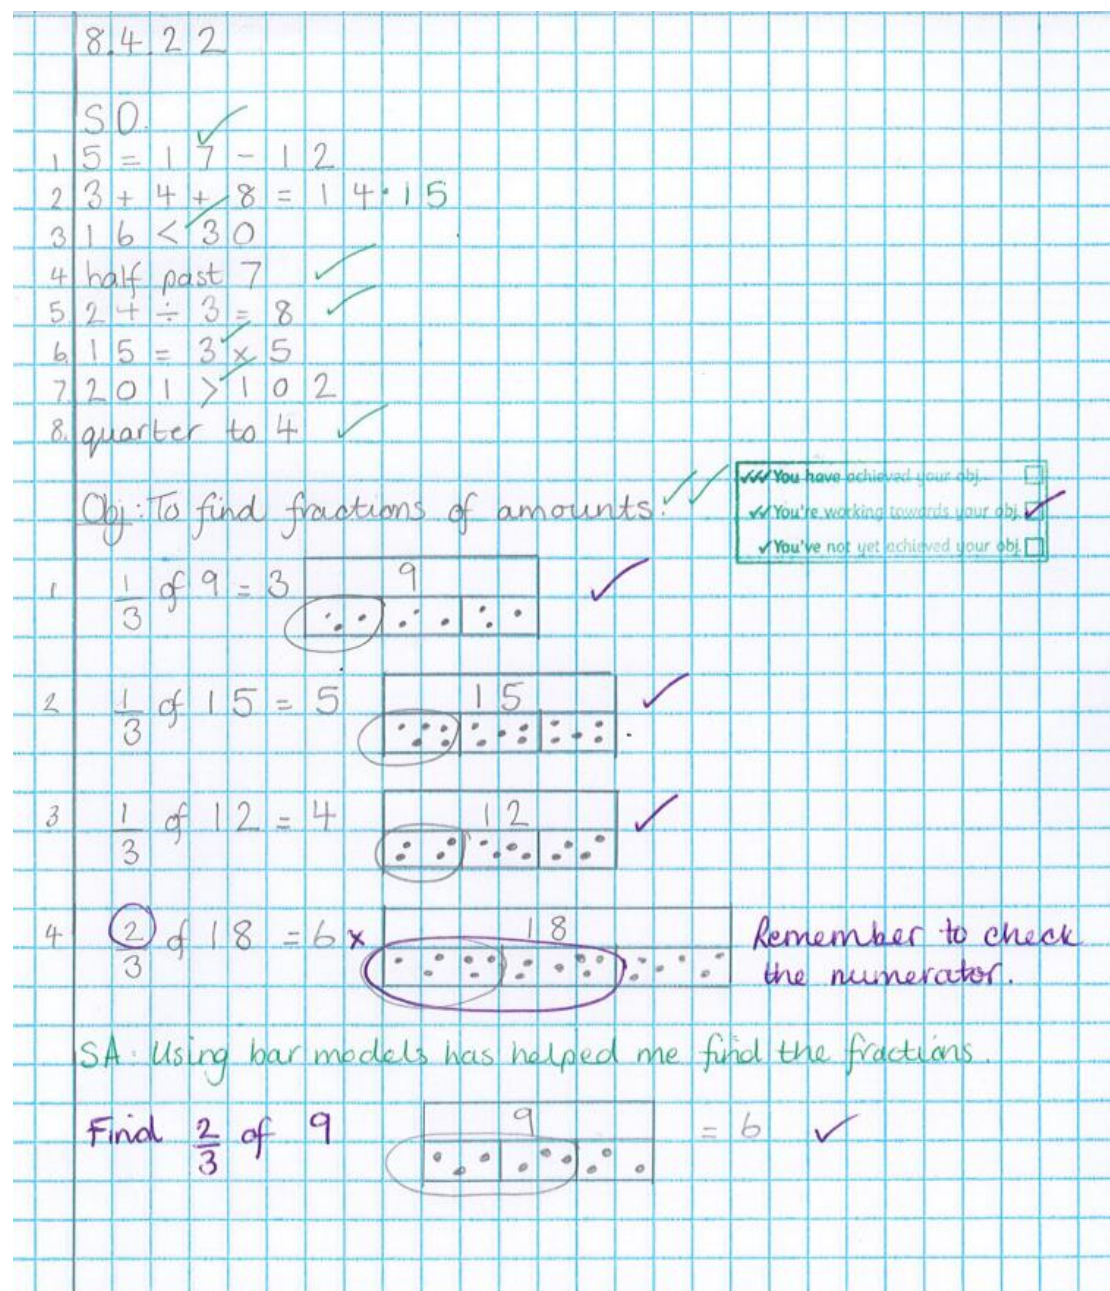 8.4.22
SO.
1 5 = 17 - 12
2 3 + 4 + 8 = 14 · 15
3 16 < 30
4 half past 7
5. 24 ÷ 3 = 8
6. 15 = 3 x 5
7. 201 > 102
8. quarter to 4
✓✓✓ You have achieved your obj.
Obj: To find fractions of amounts. ✓✓
✓✓ You're working towards your obj.
✓ You've not yet achieved your obj.
1 1/3 of 9 = 3 9
2 1/3 of 15 = 5 15
3 1/3 of 12 = 4 12
4 2/3 of 18 = 6 x 18 Remember to check
the numerator.
SA: Using bar models has helped me find the fractions.
Find 2/3 of 9 9 = 6 ✓